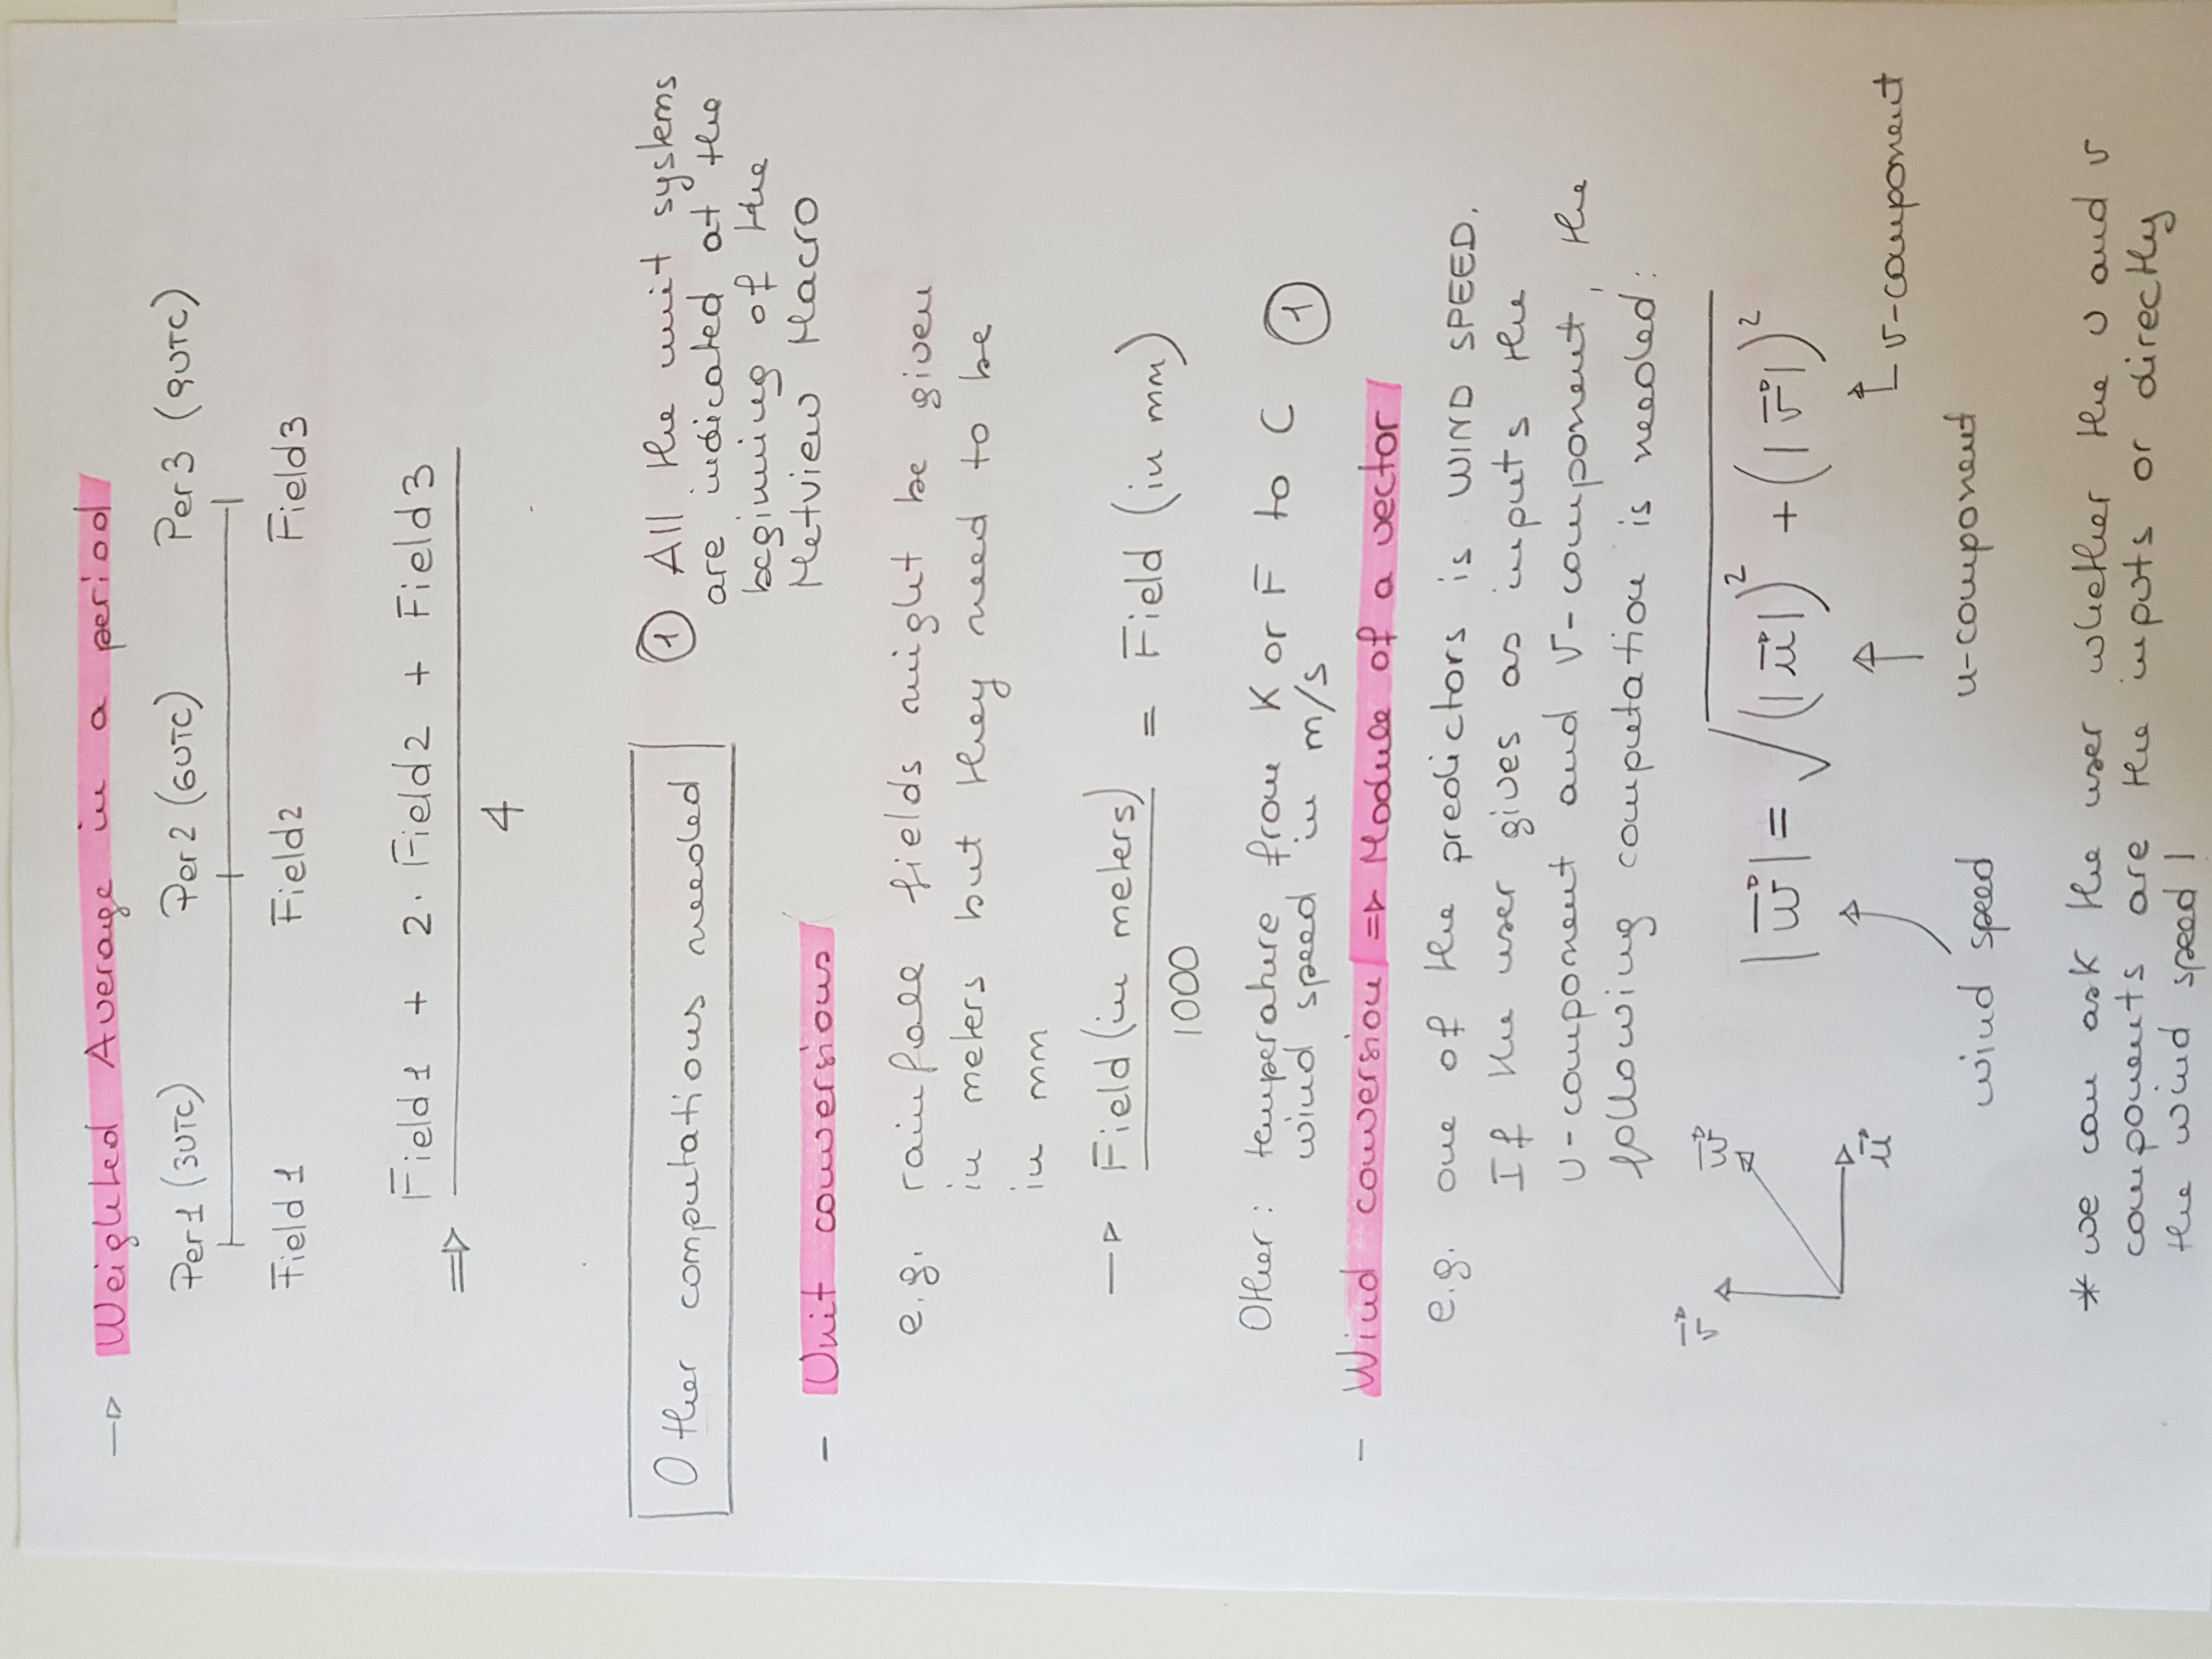 → Weighted Average in a period
Per 1 (3UTC) Per 2 (6UTC) Per 3 (9UTC)
Field 1 Field 2 Field 3
⇒ Field 1 + 2. Field 2 + Field 3
4
Other computations needed
① All the unit systems
are indicated at the
beginning of the
Metview Macro
- Unit conversions
e.g. rainfall fields might be given
in meters but they need to be
in mm
→ Field (in meters) / 1000 = Field (in mm)
Other: temperature from K or F to C ①
wind speed in m/s
- Wind conversion ⇒ Module of a vector
e.g. one of the predictors is WIND SPEED.
If the user gives as inputs the
U-component and V-component, the
following computation is needed:
v⃗ w⃗ u⃗
|w⃗| = √(|u⃗|)² + (|v⃗|)²
wind speed u-component v-component
* we can ask the user whether the u and v
components are the inputs or directly
the wind speed!